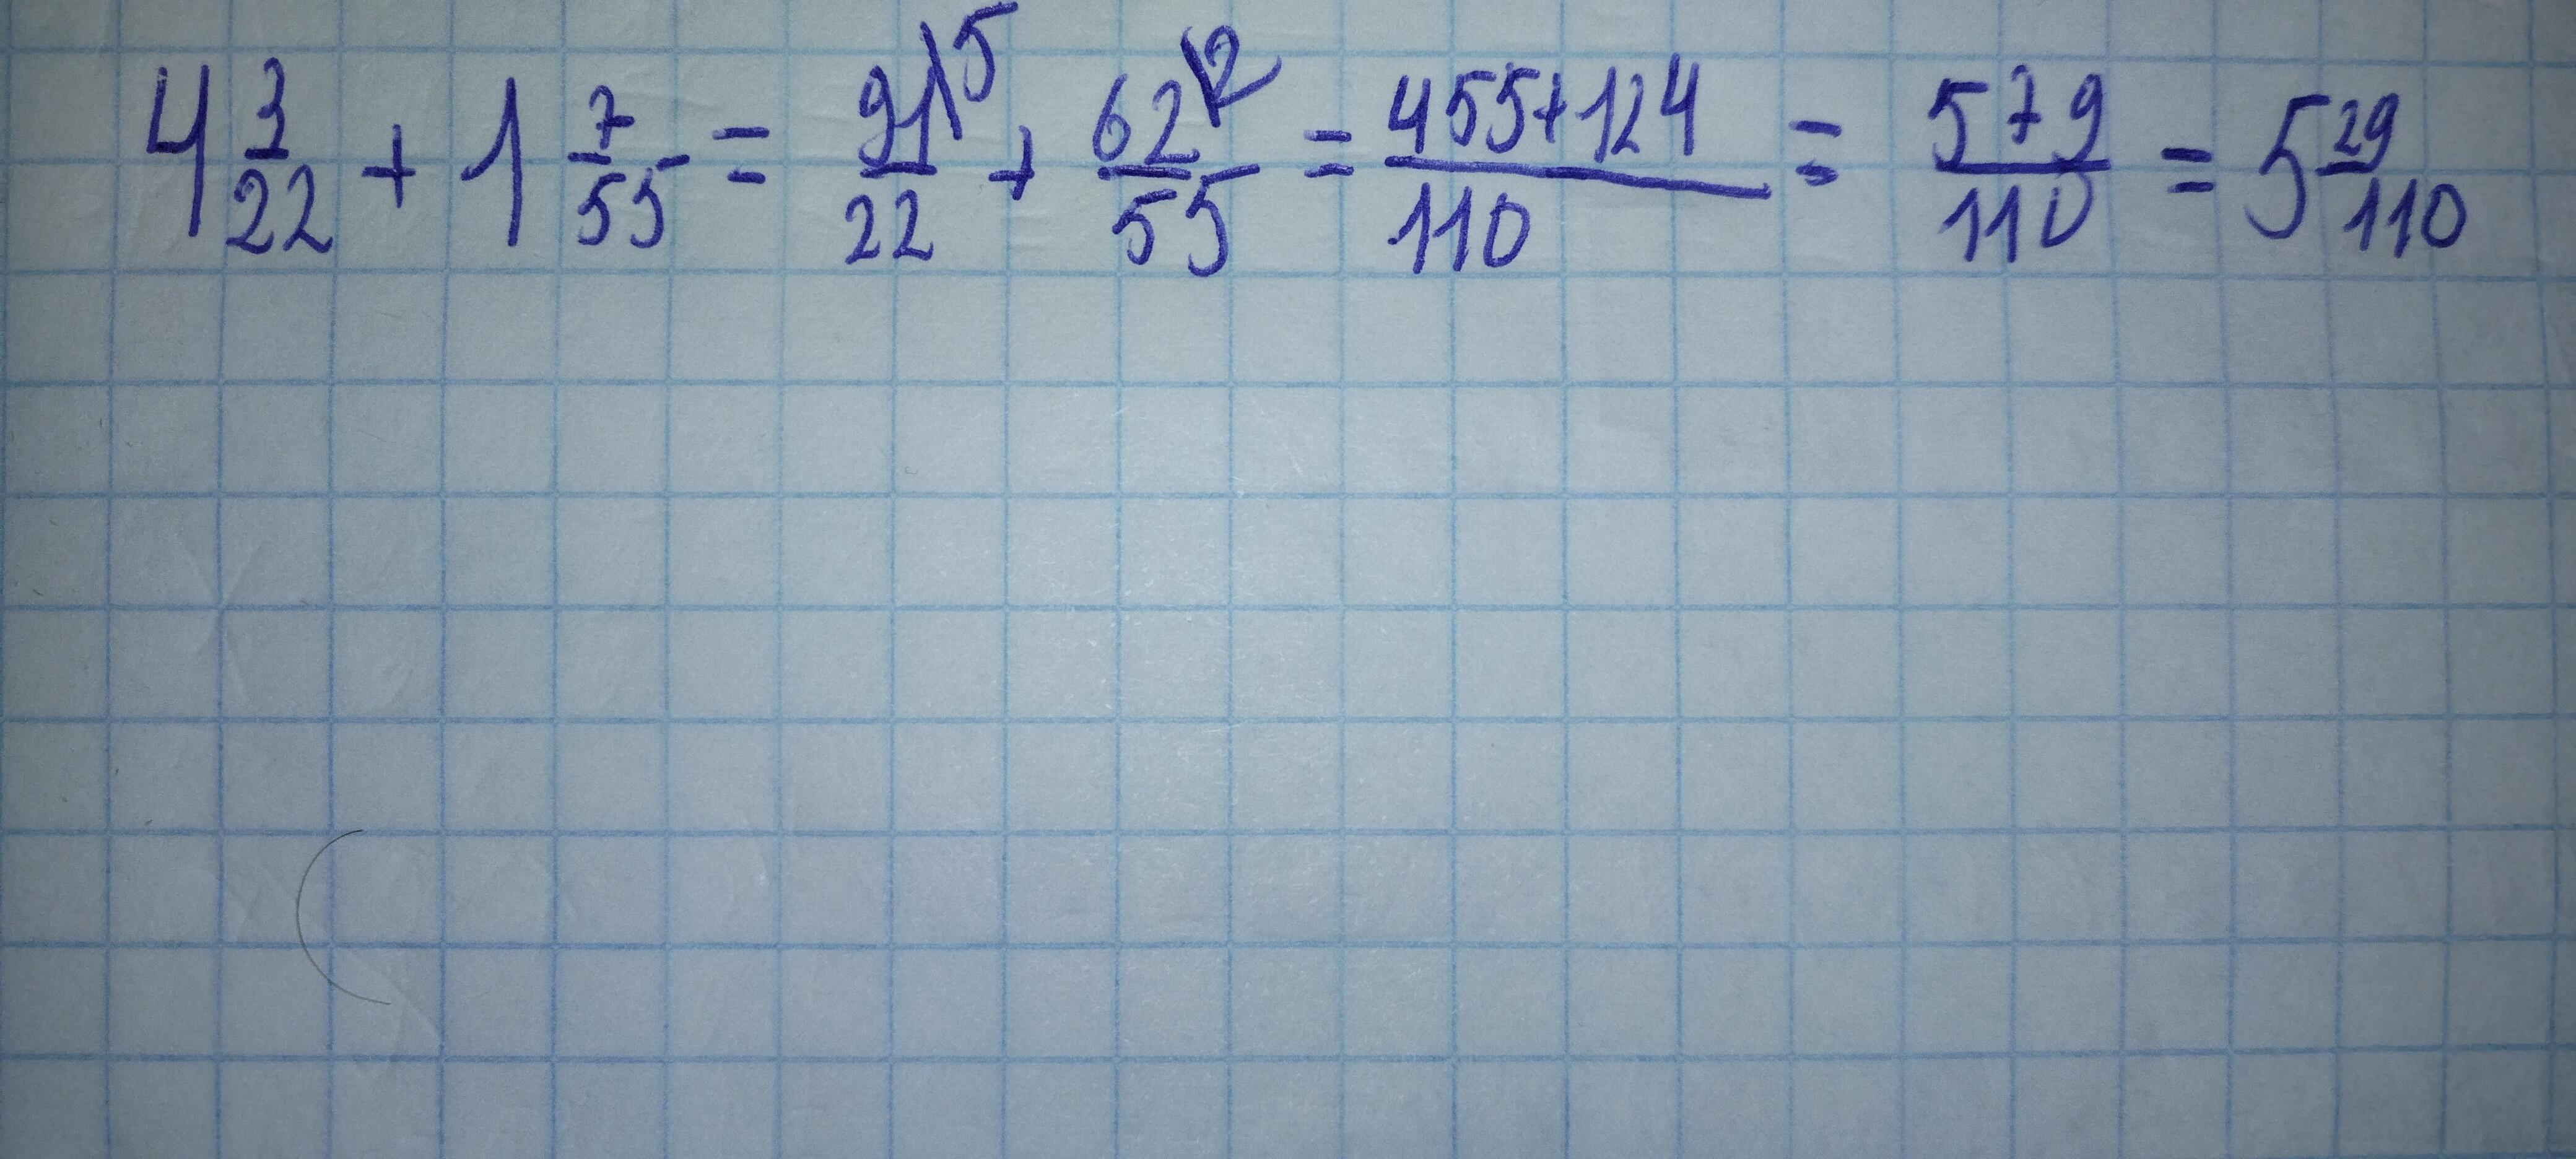 4 3/22 + 1 7/55 = 91\5/22 + 62\2/55 = 455+124/110 = 579/110 = 5 29/110